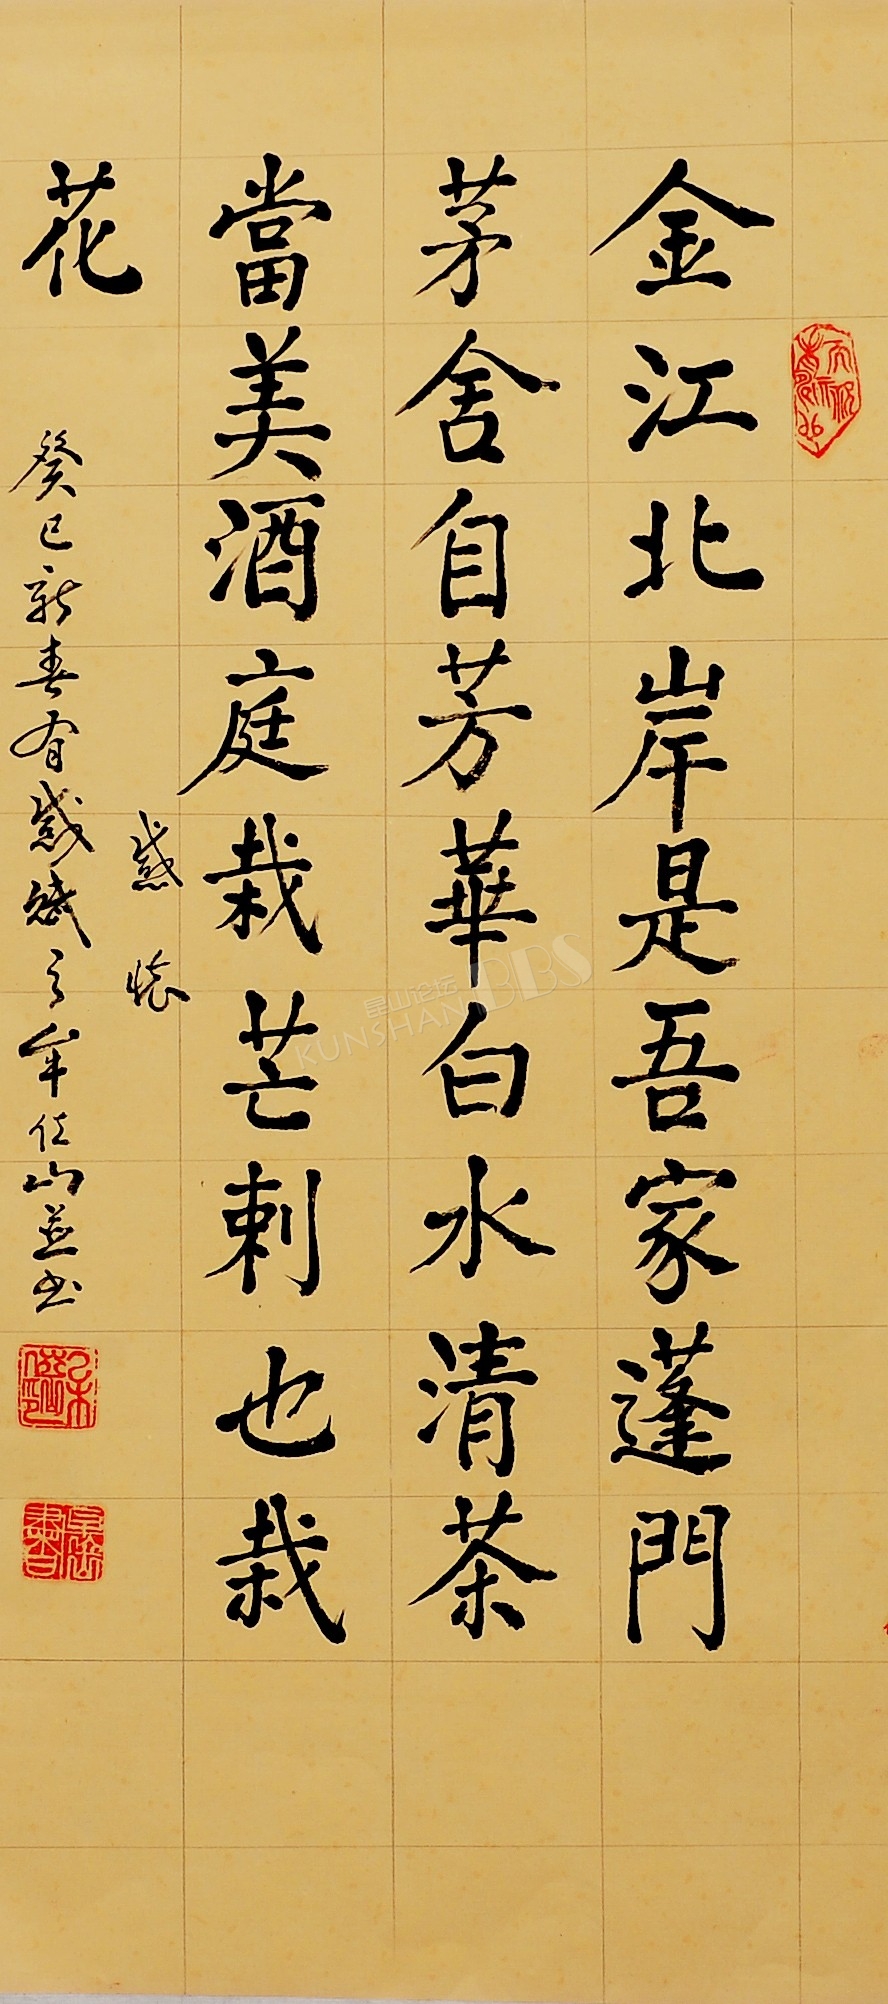 金江北岸是吾家蓬門
茅舍自芳華白水清茶
當美酒庭栽芒刺也栽
花
感懷
癸巳新春有感賦之牟仕山並書
昆山论坛
KUNSHAN BBS